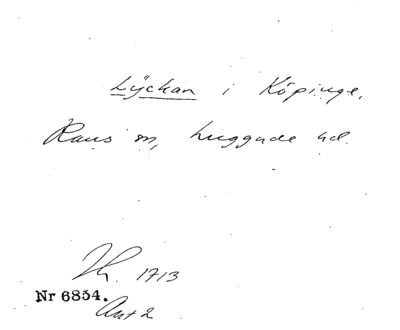 Lyckan i Köpinge.
Raus sn, Luggude hd.
1713
Nr 6854.
Avt 2